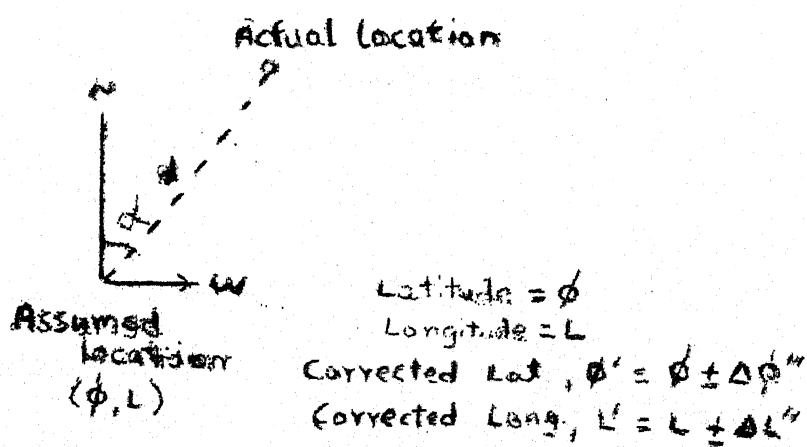 Actual Location
N
d
α
W
Assumed
location
(ϕ, L)
Latitude = ϕ
Longitude = L
Corrected Lat, ϕ' = ϕ ± Δϕ"
Corrected Long, L' = L ± ΔL"